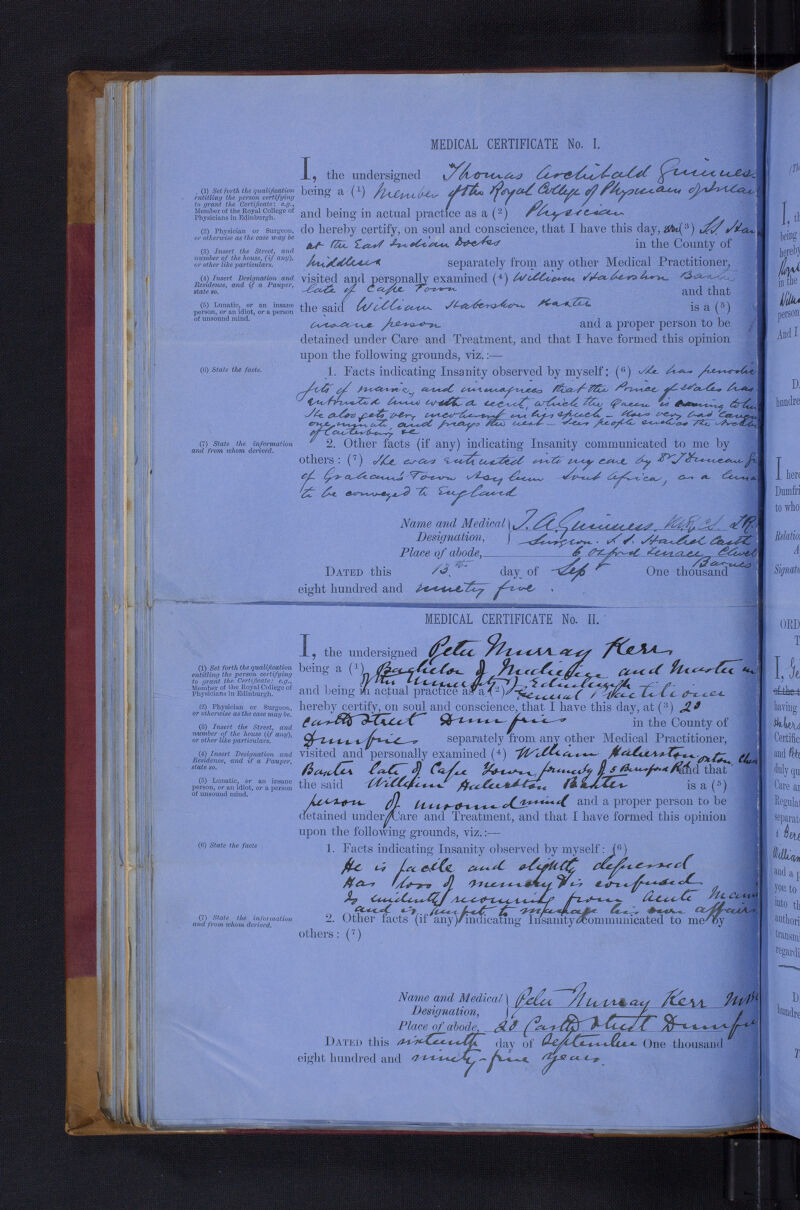 MEDICAL CERTIFICATE No. I.
(1) Set forth the qualification
entitling the person certifying
to grant the Certificate; e.g.,
Member of the Royal College of
Physicians in Edinburgh.
(2) Physician or Surgeon,
or otherwise as the case may be
(3) Insert the Street, and
number of the house, (if any),
or other like particulars.
(4) Insert Designation and
Residence, and if a Pauper,
state so.
(5) Lunatic, or an insane
person, or an idiot, or a person
of unsound mind.
(6) State the facts.
(7) State the information
and from whom derived.
I, the undersigned Thomas Archibald Guinness
being a (1) Member of the Royal College of Physicians of
and being in actual practice as a (2) Physician
do hereby certify, on soul and conscience, that I have this day, (3) S.S.
at the East Indian Docks in the County of
Middlesex separately from any other Medical Practitioner,
visited and personally examined (4) William Habershon Baxter
late of Cape Town and that
the said William Habershon Baxter is a (5)
insane person and a proper person to be
detained under Care and Treatment, and that I have formed this opinion
upon the following grounds, viz.:—
1. Facts indicating Insanity observed by myself: (6) He has periodic
fits of mania, and imagines that the Prince of Wales has
entrusted him with a secret, which the Queen is
He also gets very incoherent in his speech - uses very bad
one minute, and prays the next - sees people such as the
of Canterbury &c
2. Other facts (if any) indicating Insanity communicated to me by
others: (7) He was entrusted into my care by Dr J Duncan
of Grahams Town Asylum South Africa, as a
to be conveyed to England
Name and Medical Designation, T. A. Guinness.
Surgeon. S.S.
Place of abode, 6 Oxford Terrace
Barnes
DATED this 13th day of Sept One thousand
eight hundred and ninety five.
MEDICAL CERTIFICATE No. II.
(1) Set forth the qualification
entitling the person certifying
to grant the Certificate: e.g.,
Member of the Royal College of
Physicians in Edinburgh.
(2) Physician or Surgeon,
or otherwise as the case may be.
(3) Insert the Street, and
number of the house (if any),
or other like particulars.
(4) Insert Designation and
Residence, and if a Pauper,
state so.
(5) Lunatic, or an insane
person, or an idiot, or a person
of unsound mind.
(6) State the facts
(7) State the information
and from whom derived.
I, the undersigned Peter Murray Kerr
being a (1) Bachelor of Medicine and Master in
of the University of Edinburgh
and being in actual practice as a (2) General Practitioner
hereby certify, on soul and conscience, that I have this day, at (3) 20
Castle Street Dumfries in the County of
Dumfries separately from any other Medical Practitioner,
visited and personally examined (4) William Habershon
Baxter late of Cape Town formerly of 5 and that
the said William Habershon Baxter is a (5)
person of unsound mind and a proper person to be
detained under Care and Treatment, and that I have formed this opinion
upon the following grounds, viz.:—
1. Facts indicating Insanity observed by myself: (6)
He is facile and slightly depressed
Has loss of memory & is confused
Is evidently recovering from acute
and is unfit to manage his own affairs
2. Other facts (if any) indicating Insanity communicated to me by
others: (7)
Name and Medical Designation, Peter Murray Kerr
Place of abode, 20 Castle Street
DATED this sixteenth day of September One thousand
eight hundred and ninety-five years.